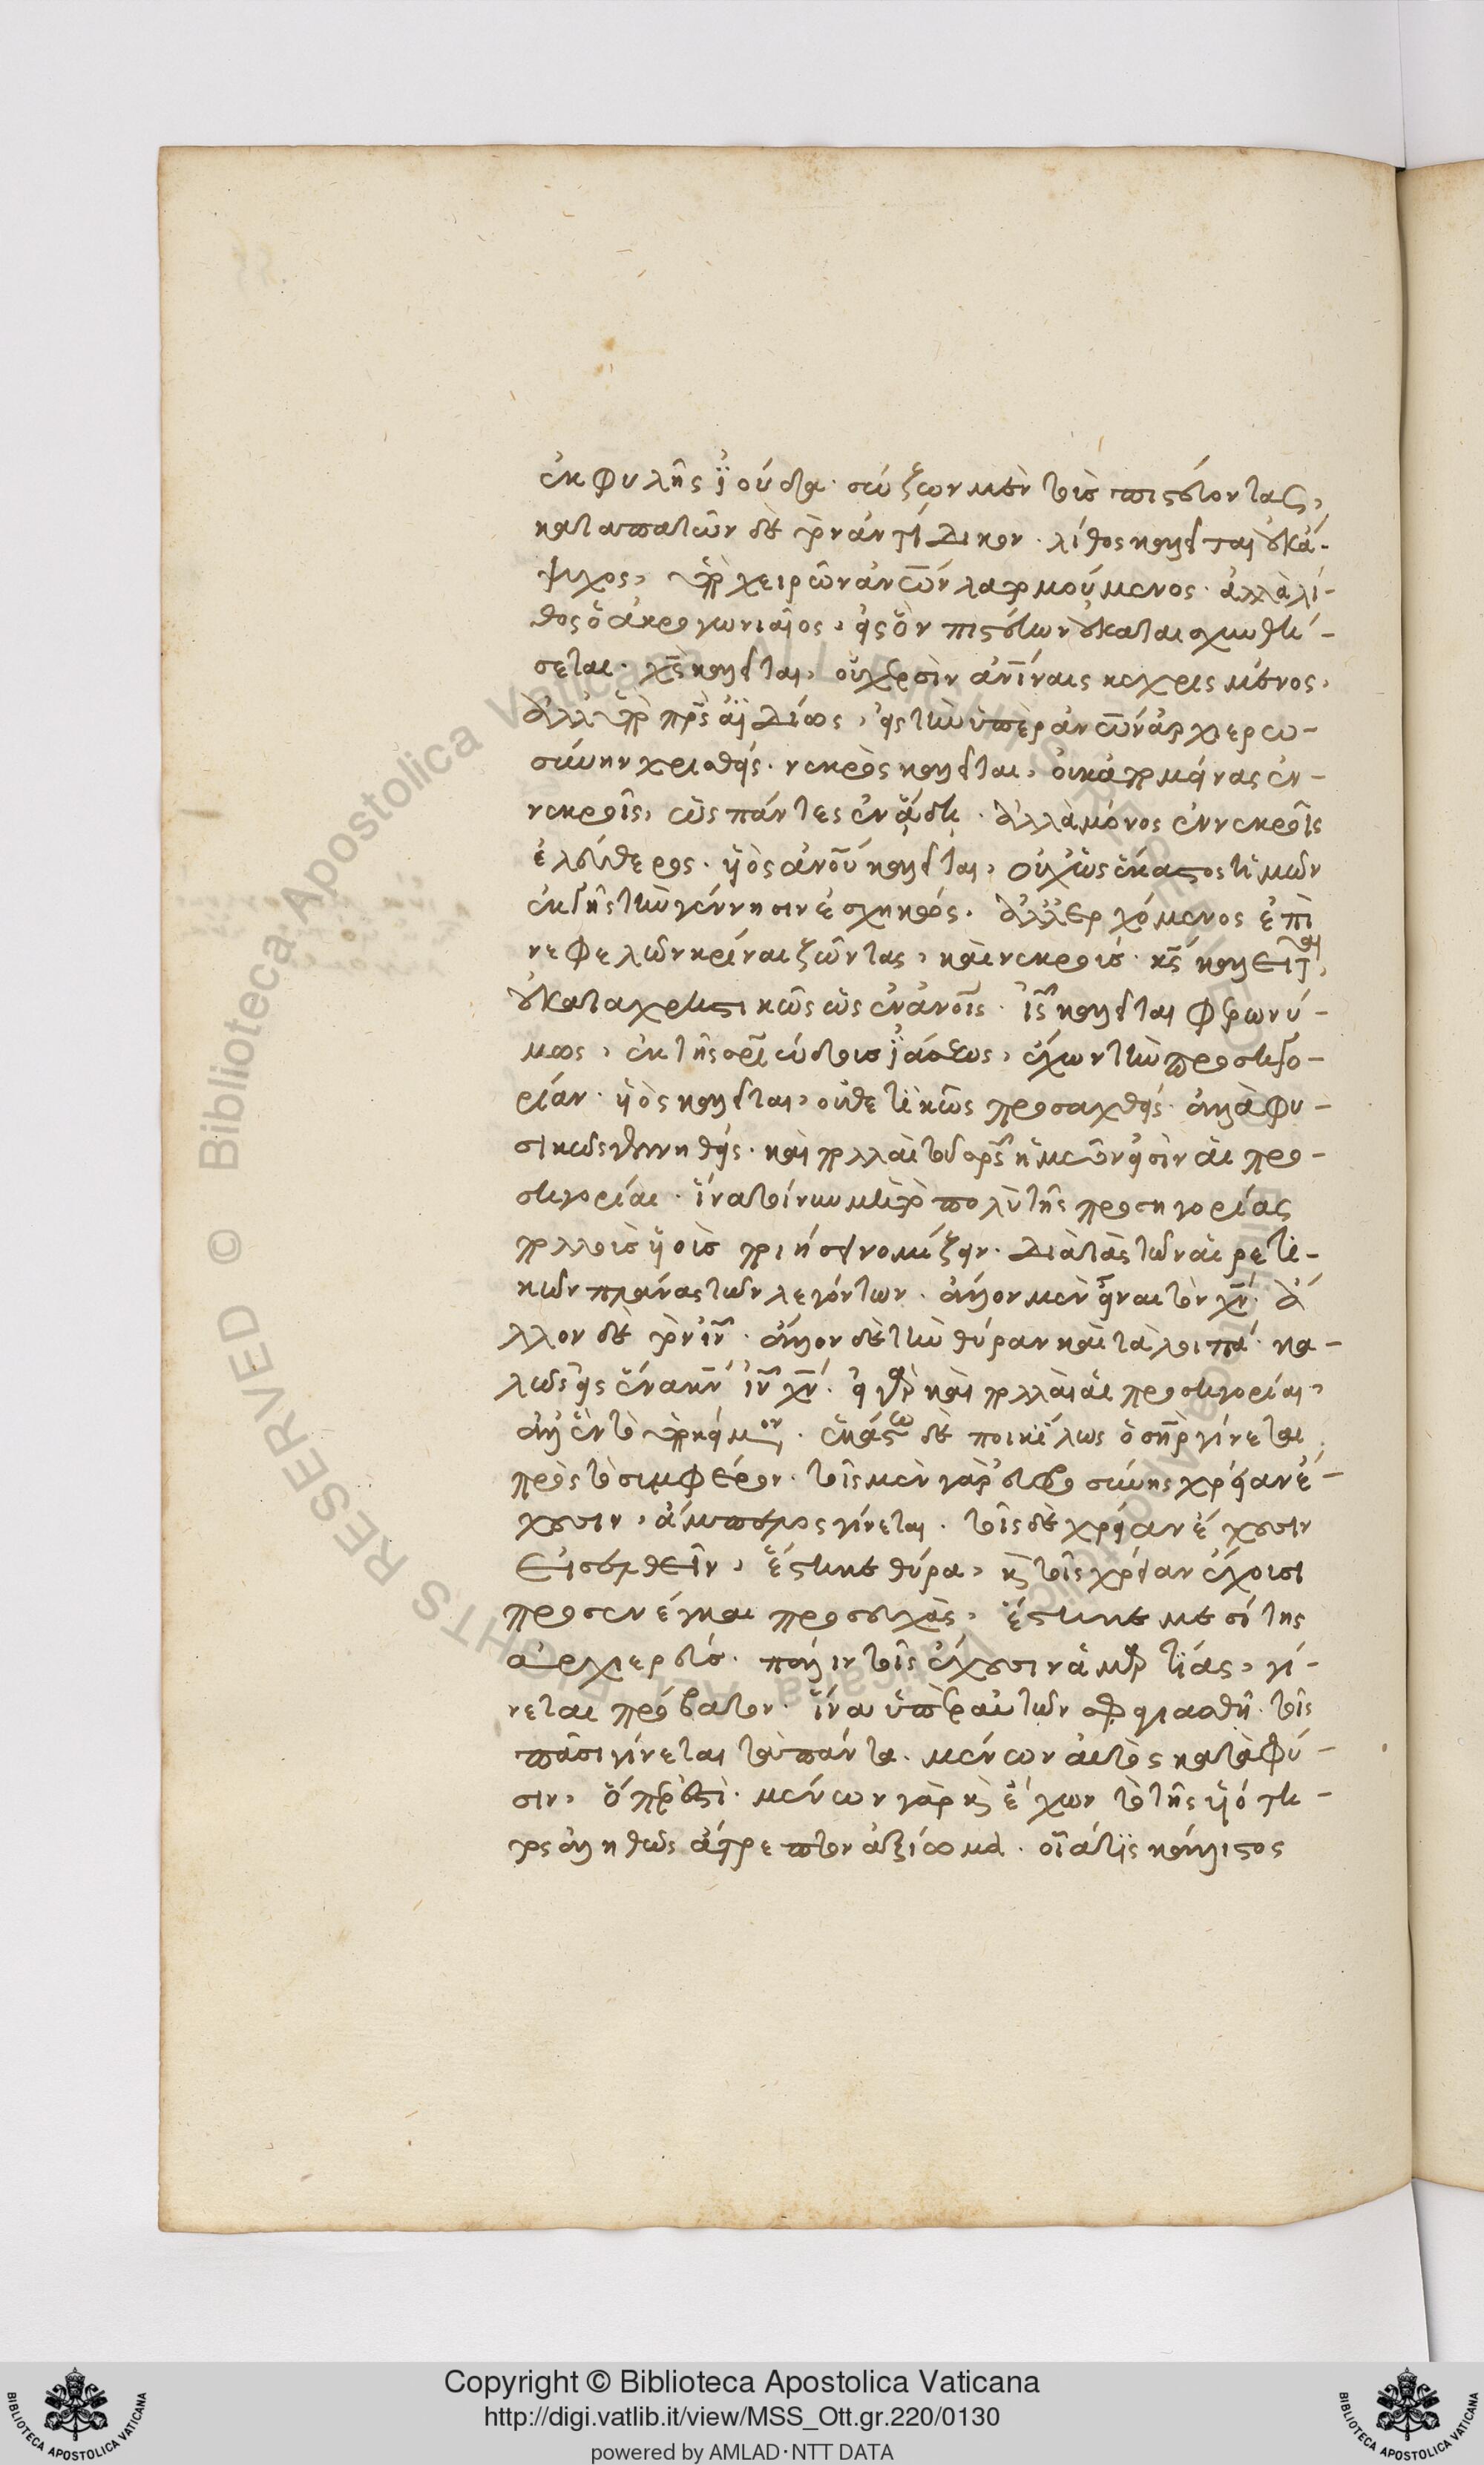 ἐκ φυλῆς ἰούδα· σώζων μὲν τοὺς πιστεύοντας,
καταπατῶν δὲ τὸν ἀντίδικον· λίθος καλεῖται οὐκ ἄ-
ψυχος, ὑπὸ χειρῶν ἀνων λατομούμενος· ἀλλὰ λί-
θος ὁ ἀκρογωνιαῖος, εἰς ὃν πιστεύων οὐ καταισχυνθή-
σεται· χς καλεῖται, οὐχ ὑπὸ ανινοις κεχρισμένος,
ἀλλ' ὑπὸ πρς ἀϊδίως, εἰς τὴν ὑπὲρ ἀνων ἀρχιερω-
σύνην χρισθείς· νεκρὸς καλεῖται, οὐκ ἀπομείνας ἐν
νεκροῖς, ὡς πάντες ἐν ἅδη· ἀλλὰ μόνος ἐν νεκροῖς
ἐλεύθερος· υἱὸς ανου καλεῖται, οὐχ ὡς ἕκαστος ἡμῶν
ἐκ γῆς τὴν γέννησιν ἐσχηκώς· ἀλλ' ἐρχόμενος ἐπὶ
νεφελῶν κρῖναι ζῶντας, καὶ νεκρούς· κς καλεῖται,
οὐ καταχρηστικῶς ὡς ἐν ἀνοις· ις καλεῖται φερωνύ-
μως, ἐκ τῆς σριώδους ἰάσεως, ἔχων τὴν προσηγο-
ρίαν· υἱὸς καλεῖται, οὐ θετικῶς προσαχθείς· ἀλλὰ φυ-
σικῶς γεννηθείς· καὶ πολλαὶ τοῦ σρς ἡμῶν εἰσὶν αἱ προ-
σηγορίαι· ἵνα τοίνυν μὴ τὸ πολὺ τῆς προσηγορίας
πολλοὺς υἱοὺς ποιήσῃ νομίζειν· διὰ τὰς τῶν αἱρετι-
κῶν πλάνας τῶν λεγόντων· ἄλλον μὲν εἶναι τὸν χν· ἄ-
λλον δὲ τὸν ιν· ἄλλον δὲ τὴν θύραν καὶ τὰ λοιπά· κα-
λῶς εἰς ἕνα κν ιν χν· εἰ γὰρ καὶ πολλαὶ αἱ προσηγορίαι,
ἀλλ' ἓν τὸ ὑποκείμενον· ἑκάστω δὲ ποικίλως ὁ σηρ γίνεται
πρὸς τὸ συμφέρον· τοῖς μὲν γὰρ εὐφροσύνης χρείαν ἔ-
χουσιν, ἄμπελος γίνεται· τοῖς δὲ χρείαν ἔχουσιν
εἰσελθεῖν, ἕστηκε θύρα, καὶ τοῖς χρείαν ἔχουσι
προσενέγκαι προσευχὰς, ἕστηκε μεσίτης
ἀρχιερεύς· πάλιν τοῖς ἔχουσιν ἁμαρτίας, γί-
νεται πρόβατον· ἵνα ὑπὲρ αὐτῶν σφαγιασθῆ· τοῖς
πᾶσι γίνεται τὰ πάντα· μένων αὐτὸς κατὰ φύ-
σιν, ὅπερ ἐστί· μένων γὰρ καὶ ἔχων τὸ τῆς υἱότη-
τος ἀληθῶς ἄτρεπτον ἀξίωμα· οἷά τις κάλλιστος